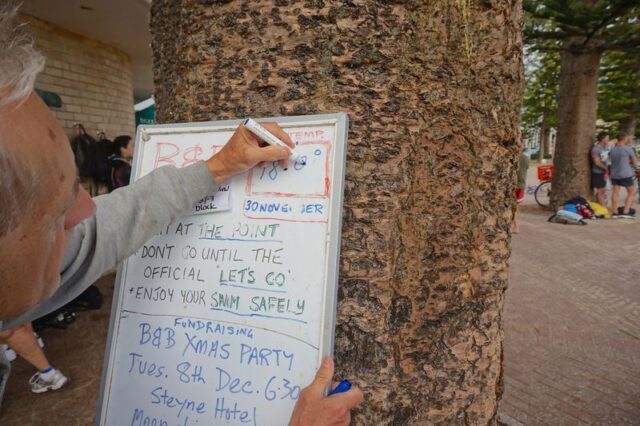 B&B
TEMP
18
30 NOVEMBER
block
AT THE POINT
DON'T GO UNTIL THE
OFFICIAL 'LET'S GO'
* ENJOY YOUR SWIM SAFELY
FUNDRAISING
B&B XMAS PARTY
Tues. 8th Dec. 6:30
Steyne Hotel